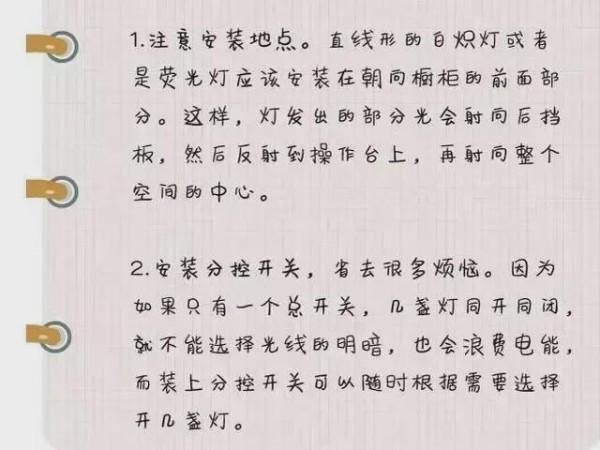 1.注意安装地点。直线形的白炽灯或者
是荧光灯应该安装在朝向橱柜的前面部
分。这样，灯发出的部分光会射向后挡
板，然后反射到操作台上，再射向整个
空间的中心。
2.安装分控开关，省去很多烦恼。因为
如果只有一个总开关，几盏灯同开同闭，
就不能选择光线的明暗，也会浪费电能，
而装上分控开关可以随时根据需要选择
开几盏灯。